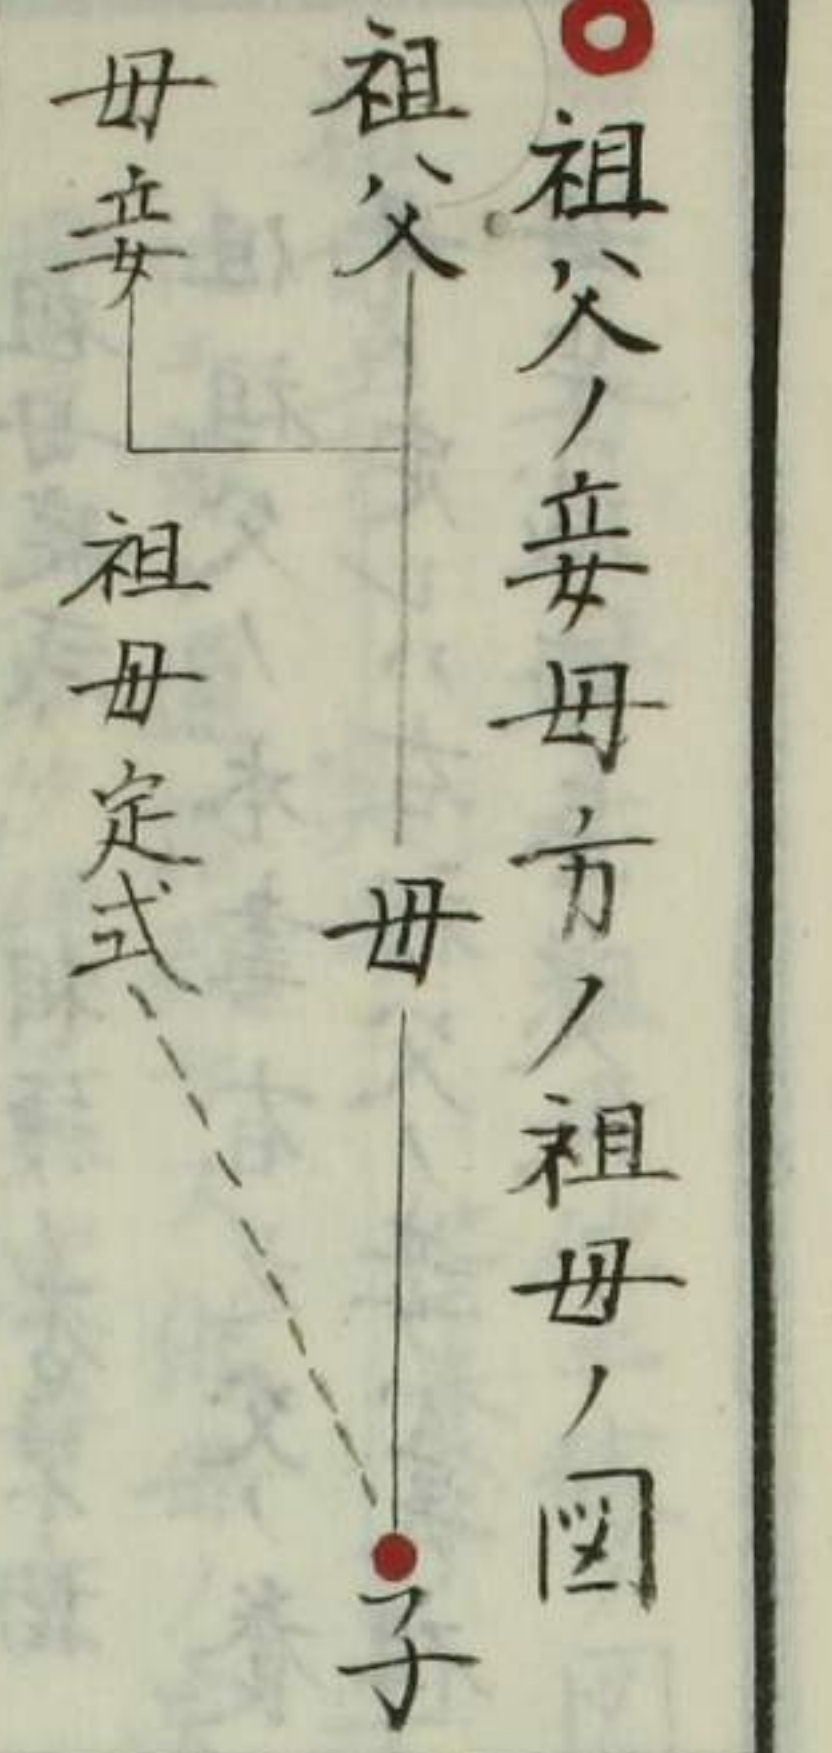 祖父ノ妾母方ノ祖母ノ図
祖父
母
子
母妾
祖母定式